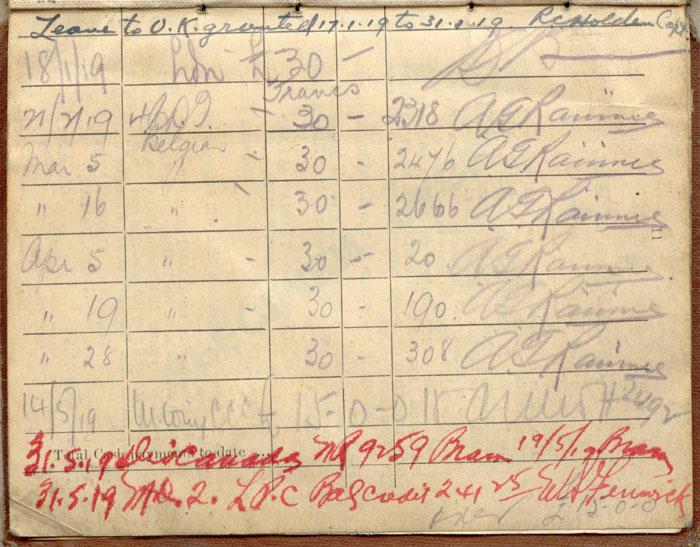 Leave to U.K. granted 17.1.19 to 31.1.19 R C Holden Capt
18/1/19 30 -
Francs
21/2/19 30 - 2318 A G Rainnie
Belgian
Mar 5 " - 30 - 2476 A G Rainnie
" 16 " - 30 - 2666 A G Rainnie
Apr 5 " - 30 - 20 A G Rainnie
" 19 " - 30 - 190 A G Rainnie
" 28 " - 30 - 308 A G Rainnie
14/5/19 Wing CCC £ 15-0-0
Total Cash payments to date
31.5.19 Canada 9259 Bram 19/5/19 Bram
31.5.19 No. 2. L.P.C 241 25 Fenwick
£ 15-0-0